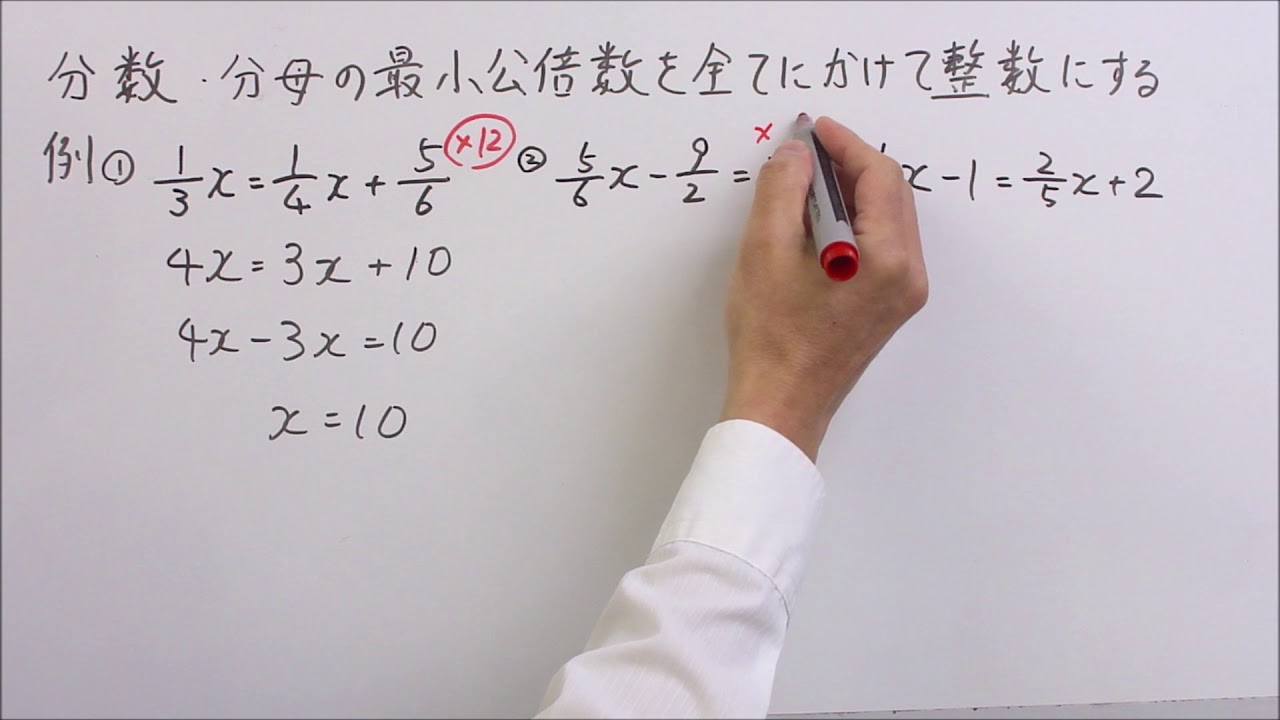 分数・分母の最小公倍数を全てにかけて整数にする
例 ① 1/3 x = 1/4 x + 5/6 ×12 ② 5/6 x - 9/2 = × x - 1 = 2/5 x + 2
4x = 3x + 10
4x - 3x = 10
x = 10